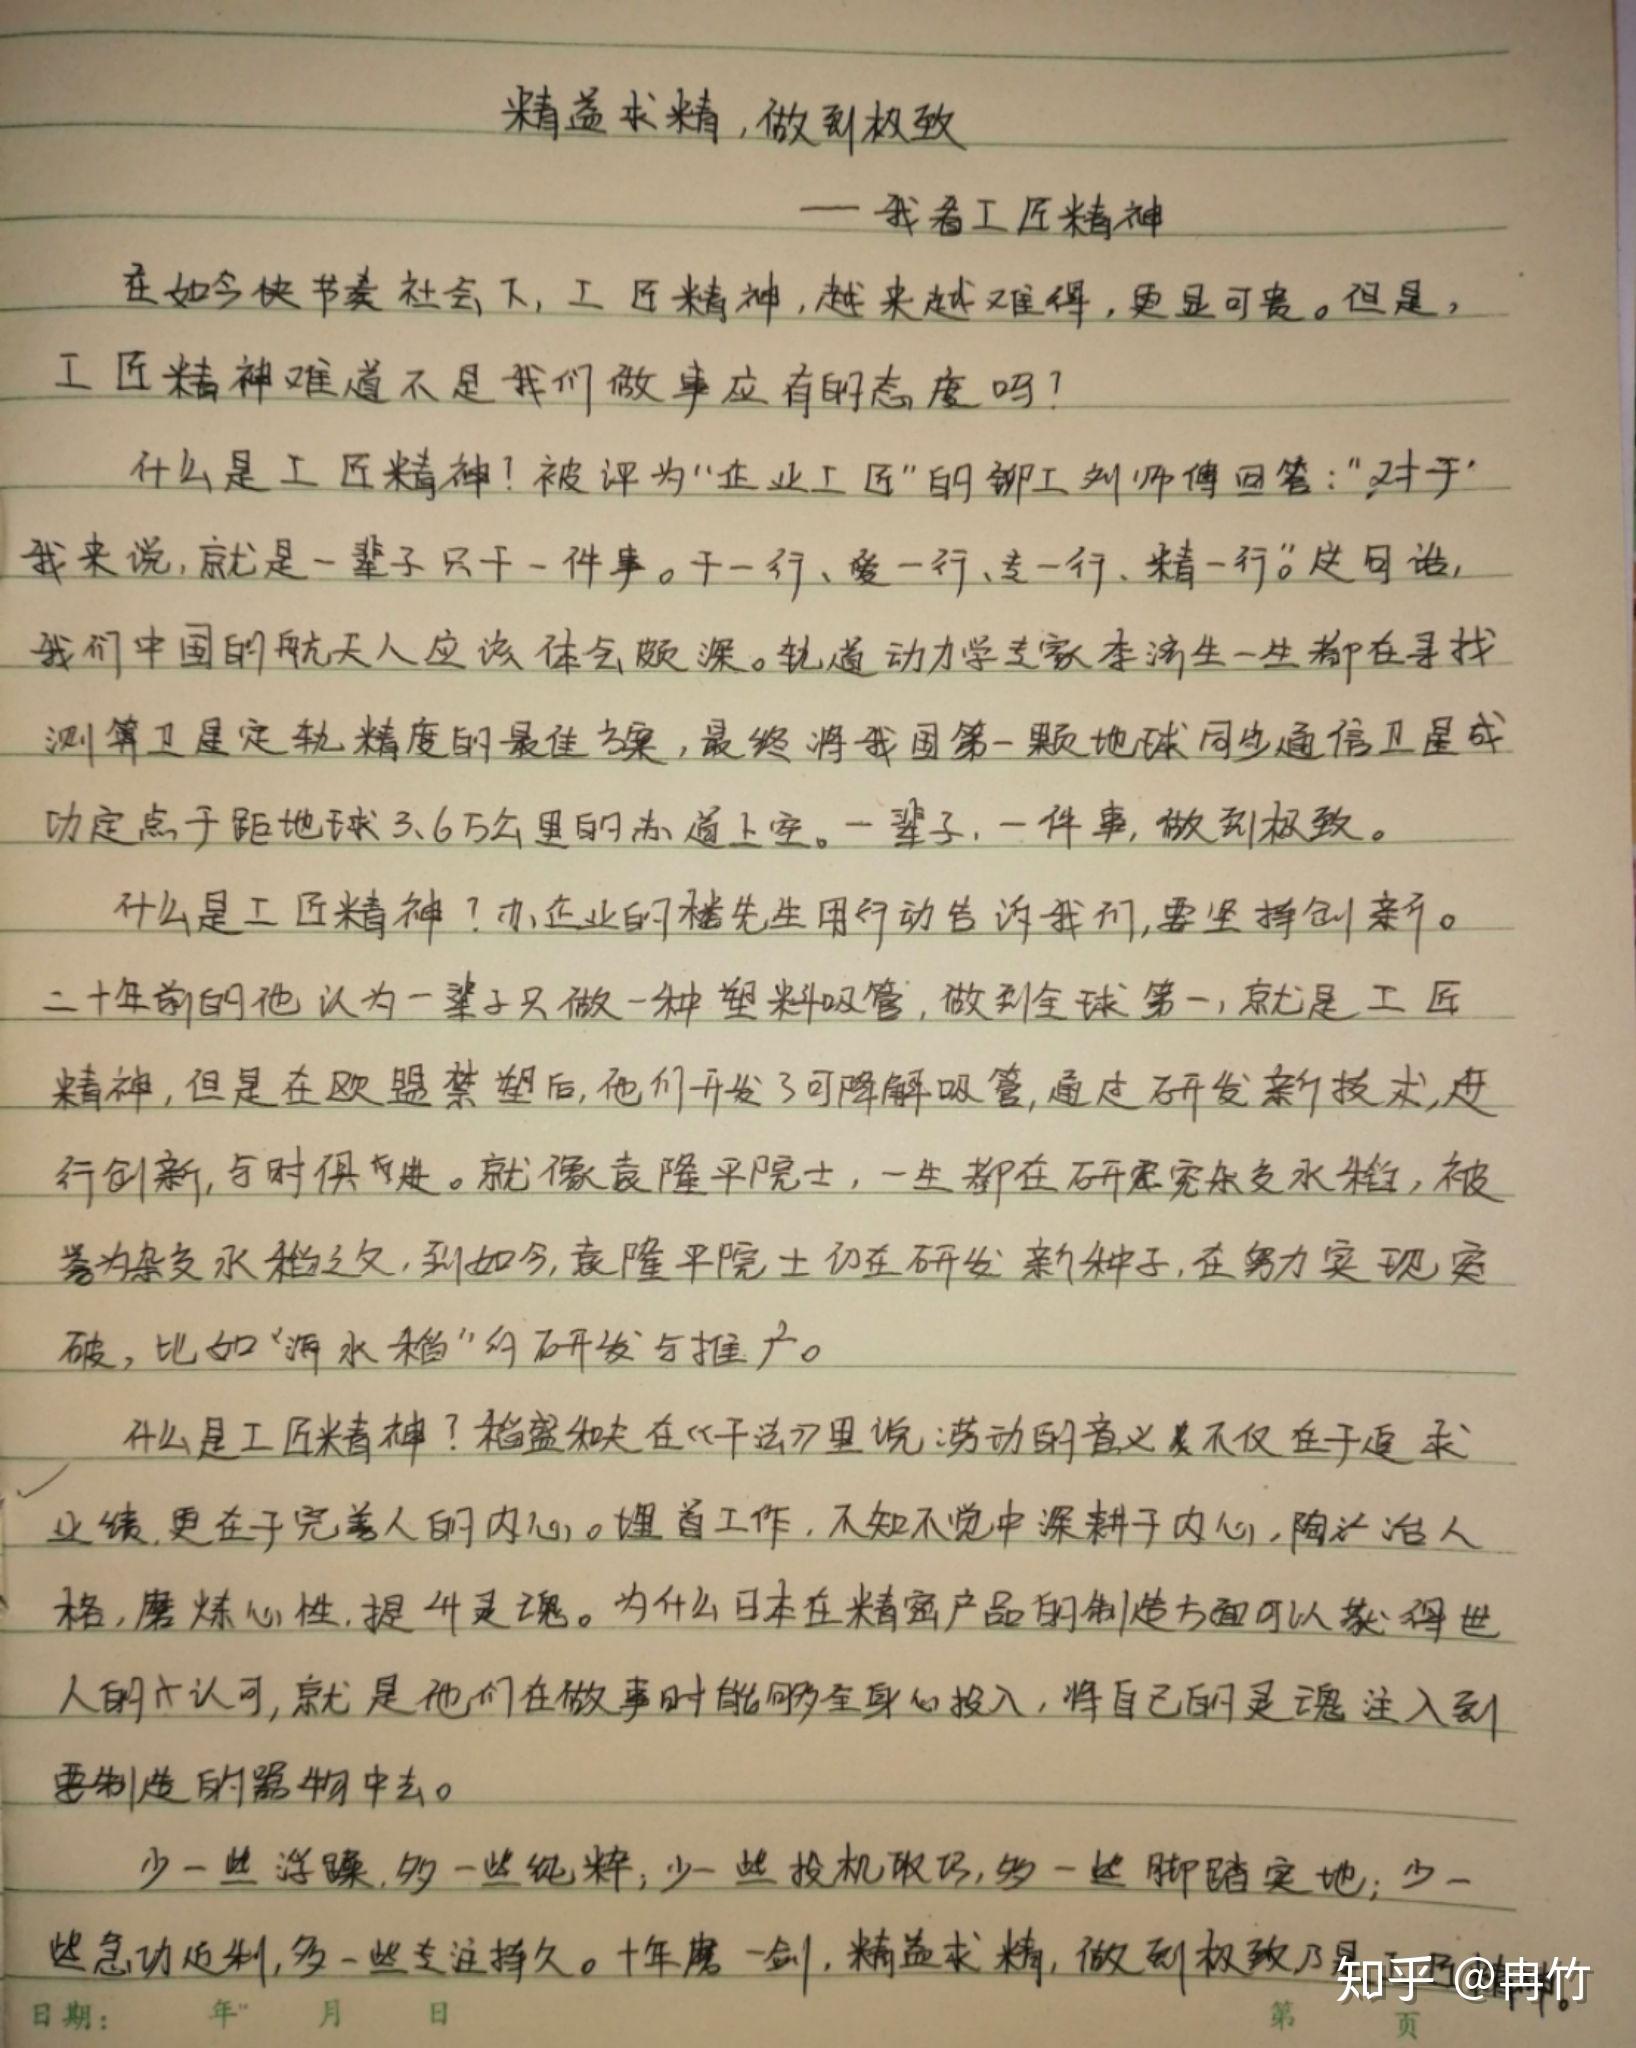 精益求精，做到极致
——我看工匠精神
在如今快节奏社会下，工匠精神，越来越难得，更显可贵。但是，
工匠精神难道不是我们做事应有的态度吗？
什么是工匠精神？被评为“企业工匠”的铆工刘师傅回答：“对于
我来说，就是一辈子只干一件事。干一行、爱一行、专一行、精一行。”这句话，
我们中国的航天人应该体会颇深。轨道动力学专家李济生一生都在寻找
测算卫星定轨精度的最佳方案，最终将我国第一颗地球同步通信卫星成
功定点于距地球3.6万公里的赤道上空。一辈子，一件事，做到极致。
什么是工匠精神？办企业的楼先生用行动告诉我们，要坚持创新。
二十年前的他认为一辈子只做一种塑料吸管，做到全球第一，就是工匠
精神，但是在欧盟禁塑后，他们开发了可降解吸管，通过研发新技术，进
行创新，与时俱进。就像袁隆平院士，一生都在研究杂交水稻，被
誉为杂交水稻之父，到如今，袁隆平院士仍在研发新种子，在努力实现突
破，比如“海水稻”的研发与推广。
什么是工匠精神？稻盛和夫在《干法》里说：劳动的意义不仅在于追求
业绩，更在于完善人的内心。埋首工作，不知不觉中深耕于内心，陶冶人
格，磨炼心性，提升灵魂。为什么日本在精密产品的制造方面可以获得世
人的认可，就是他们在做事时能够全身心投入，将自己的灵魂注入到
要制造的器物中去。
少一些浮躁，多一些纯粹；少一些投机取巧，多一些脚踏实地；少一
些急功近利，多一些专注持久。十年磨一剑，精益求精，做到极致乃是工匠精神。
日期： 年 月 日 第 页
知乎 @冉竹